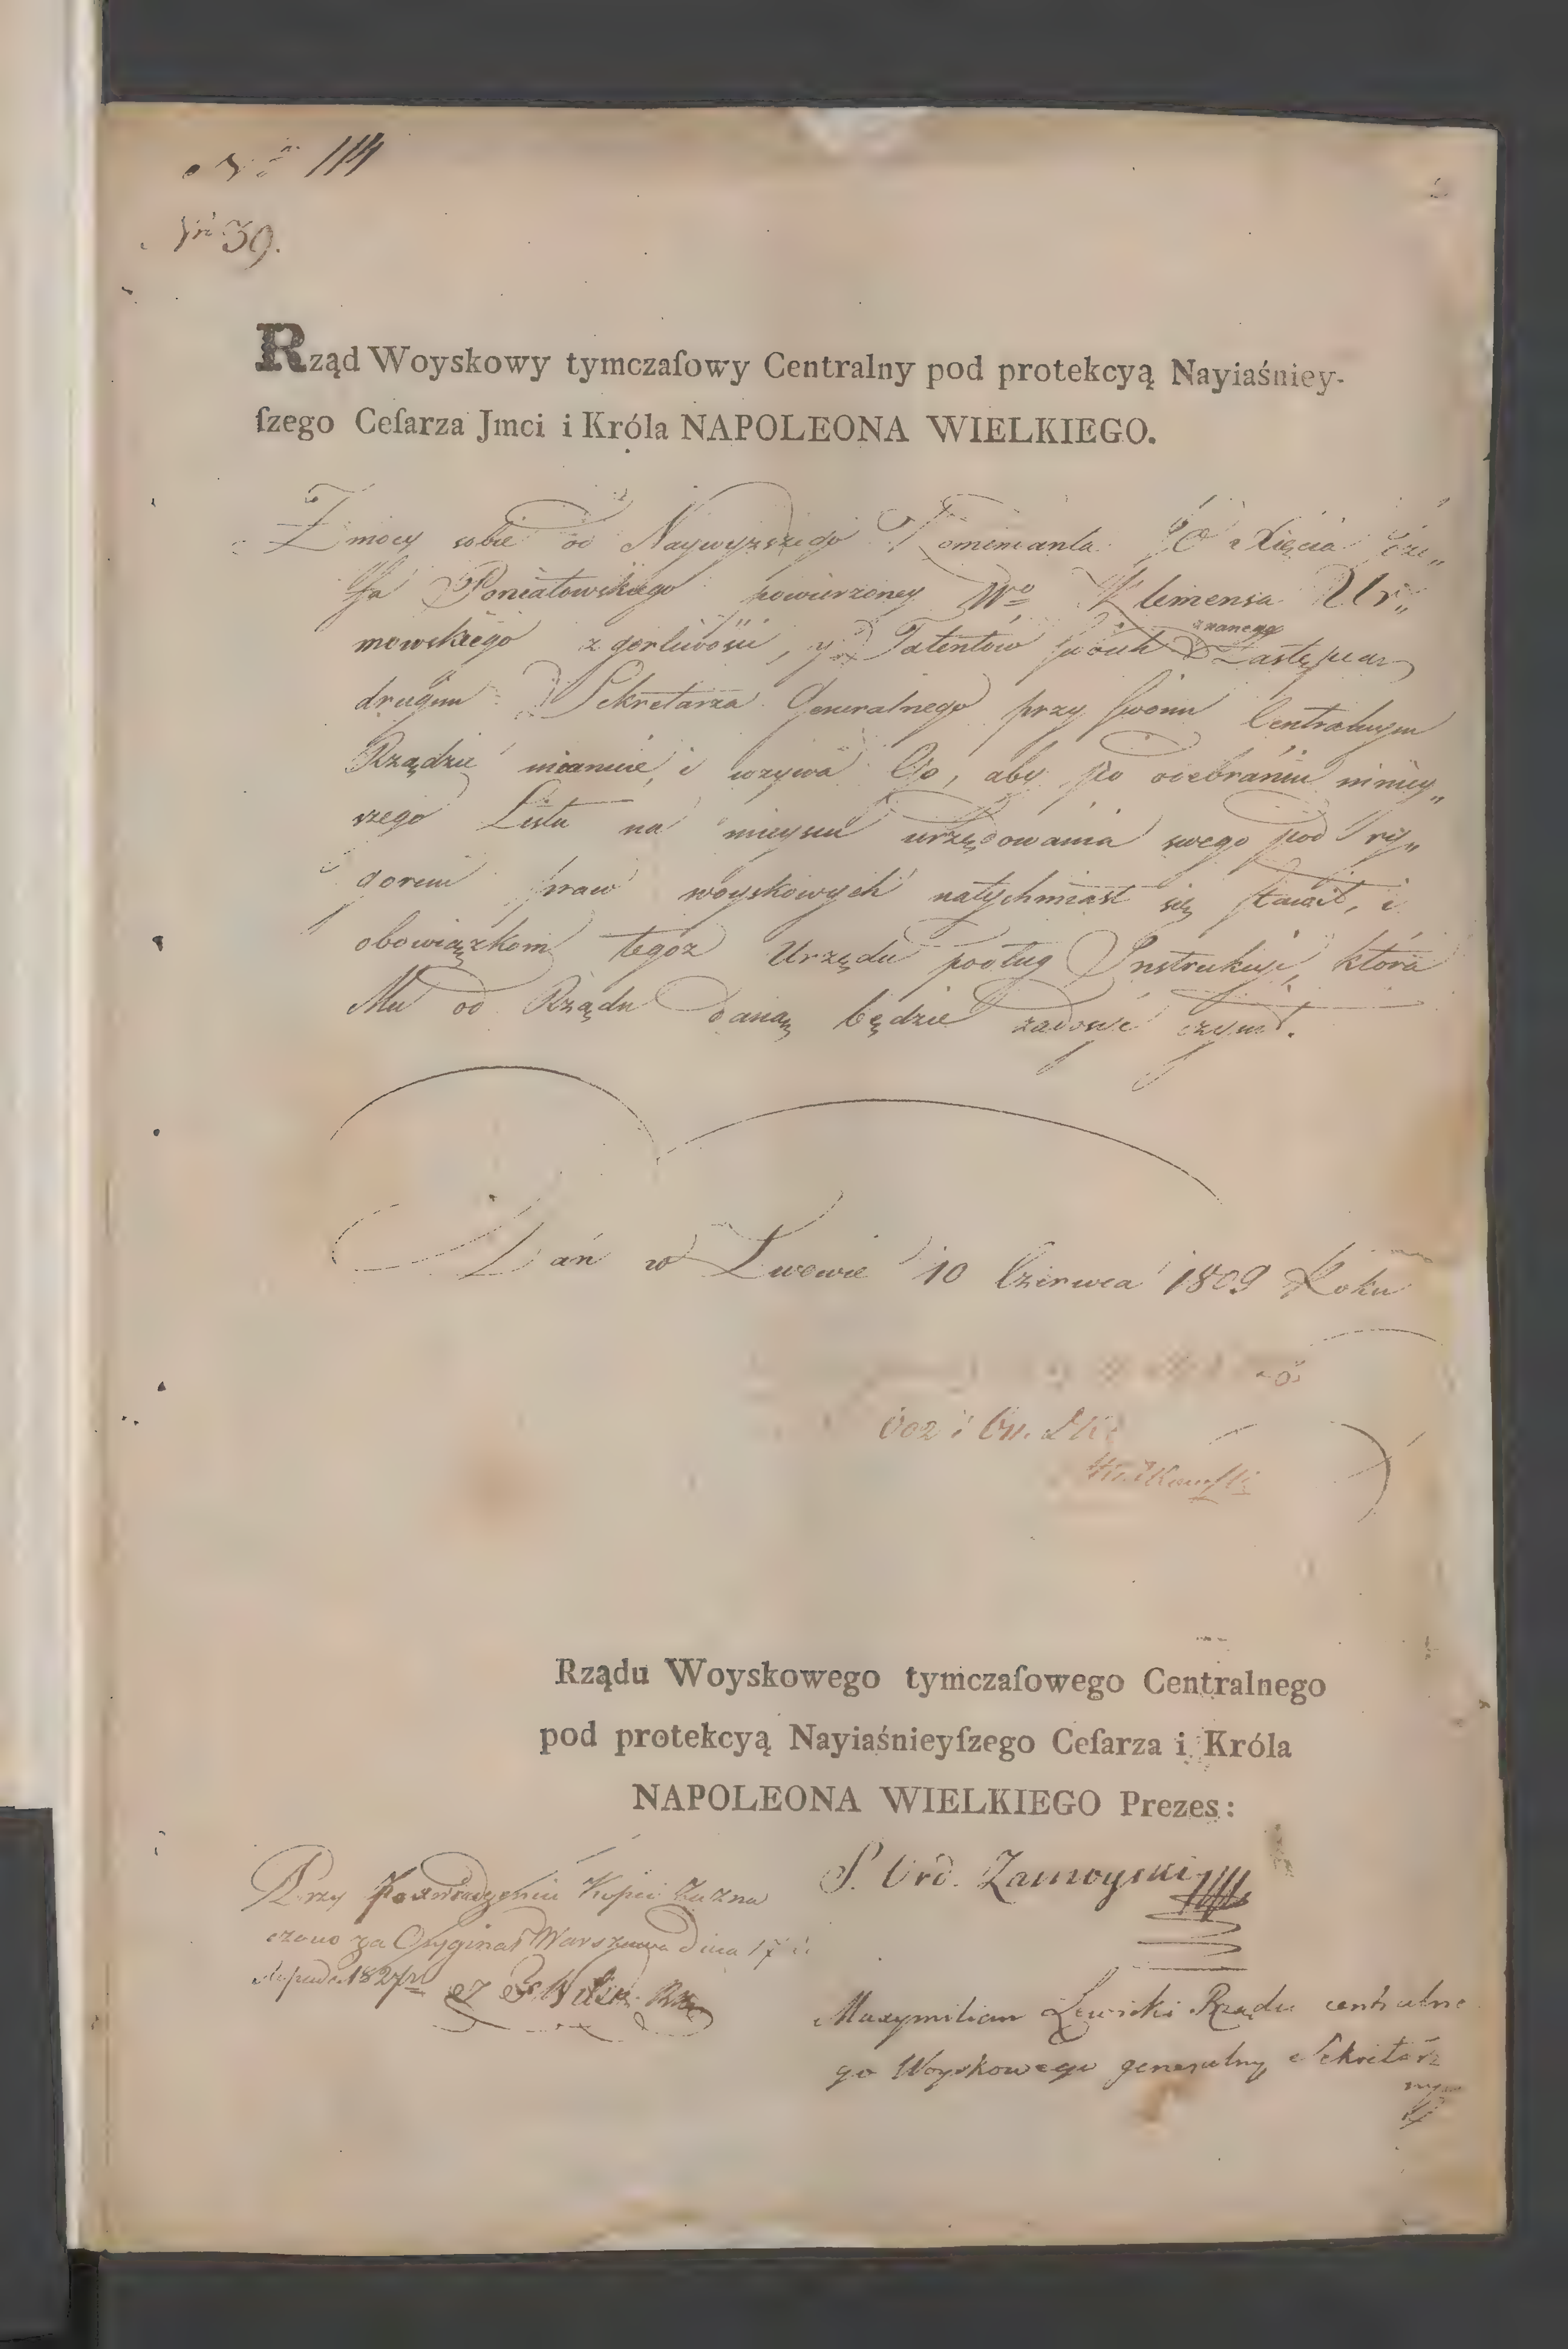 Nro 114
Nr 39.
Rząd Woyskowy tymczaſowy Centralny pod protekcyą Nayiaśniey-
ſzego Ceſarza Jmci i Króla NAPOLEONA WIELKIEGO.
Z mocy sobie od Naywyższego Kommenanta JO Xięcia Józe„
fa Poniatowskiego powierzoney Wo Klemensa Ur„
mowskiego z gorliwości, y Talentów swoich znanego Zastępcą
drugim Sekretarza Generalnego przy swoim Centralnym
Rządzie mianuie, i wzywa Go, aby po odebraniu ninięy„
szego Listu na mieyscu urzędowania swego pod ry„
gorem praw woyskowych natychmiast się stawił, i
obowiązkom tegoż Urzędu podług Instrukcyi, która
Mu od Rządu daną będzie zadosyć czynił.
Dań w Lwowie 10 Czerwca 1809 Roku
Rządu Woyskowego tymczaſowego Centralnego
pod protekcyą Nayiaśnieyſzego Ceſarza i Króla
NAPOLEONA WIELKIEGO Prezes:
S. Ord. Zamoyski
Przy Poświadczeniu Kopii Zazna
czono za Oryginał Warszawa Dnia 17
1827 r
Maxymilian Lewicki Rządu centralne
go Woyskowego generalny Sekretarz